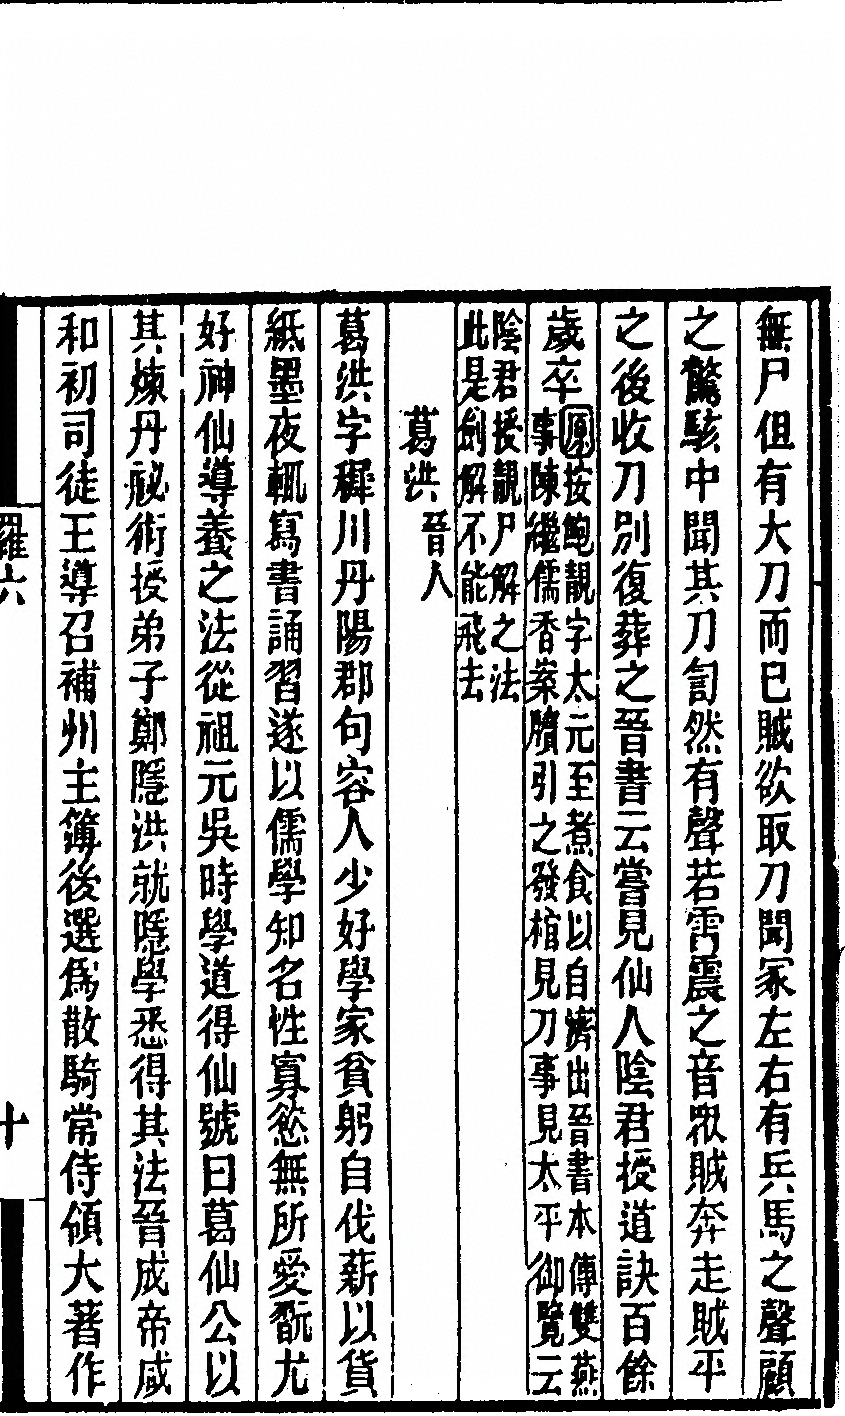 無尸但有大刀而已賊欲取刀聞冢左右有兵馬之聲顧
之驚駭中聞其刀訇然有聲若雷震之音衆賊奔走賊平
之後收刀別復葬之晉書云嘗見仙人陰君授道訣百餘
歲卒
原按鮑靚字太元至煮食以自濟出晉書本傳雙燕
事陳繼儒香案牘引之發棺見刀事見太平御覽云
陰君授靚尸解之法
此是劍解不能飛去
葛洪晉人
葛洪字穉川丹陽郡句容人少好學家貧躬自伐薪以貨
紙墨夜輒寫書誦習遂以儒學知名性寡慾無所愛翫尤
好神仙導養之法從祖元吳時學道得仙號曰葛仙公以
其煉丹祕術授弟子鄭隱洪就隱學悉得其法晉成帝咸
和初司徒王導召補州主簿後選爲散騎常侍領大著作
羅六
十